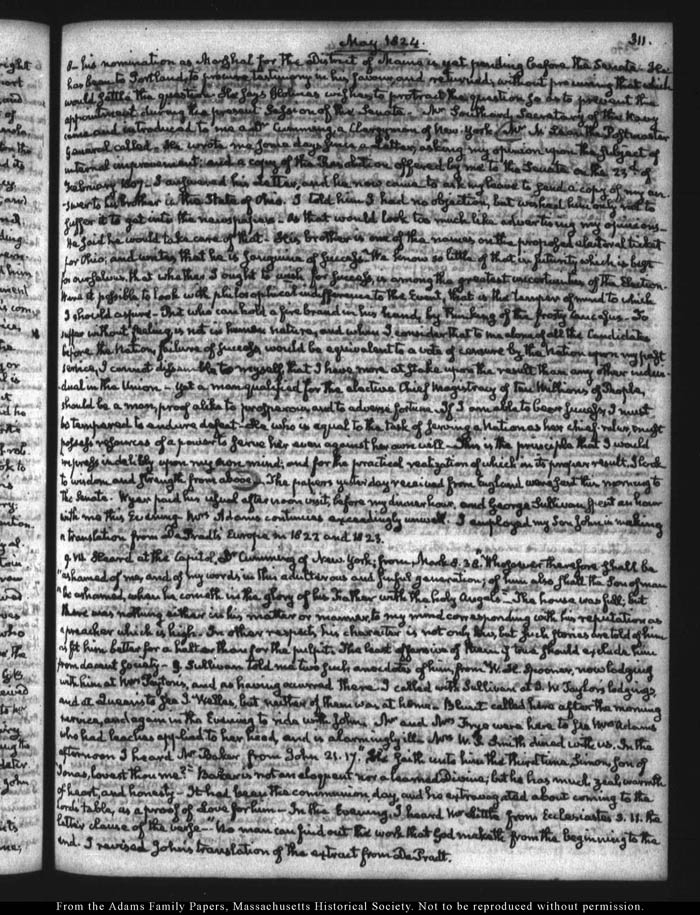 May 1824.
311.
his nomination as Marshal for the District of Maine is yet pending before the Senate. He
has been to Portland, to procure testimony in his favour, and returned without procuring that which
would settle the question. He says Holmes wishes to protract the question so as to prevent the
appointment during the present Session of the Senate. Mr Southard Secretary of the Navy
came and introduced to me a Dr Cumming, a Clergyman of New-York. Mr McLean the Postmaster
General called. He wrote me some days since a Letter, asking my opinion upon the subject of
internal improvement: and a copy of the Resolution offered by me to the Senate on the 23d of
February 1807. I answered his Letter, and he now came to ask my leave to send a copy of my an-
swer to his brother in the State of Ohio. I told him I had no objection, but wished him only not to
suffer it to get into the newspapers. As that would look too much like advertising my opinions—
He said he would take care of that. His brother is one of the names on the proposed electoral ticket
for Ohio; and writes that he is sanguine of success. We know so little of that in futurity which is best
for ourselves, that whether I ought to wish for success, is among the greatest uncertainties of the Election.
Were it possible to look with philosophical indifference to the Event, that is the temper of mind to which
I should aspire. But who can hold a fire brand in his hand, by thinking of the frosty Caucasus. To
suffer without feeling is not in human nature, and when I consider that to me alone of all the Candidates
before the Nation, failure of success would be equivalent to a vote of censure by the Nation upon my past
service, I cannot dissemble to myself that I have more at stake upon the result than any other indivi-
dual in the Union. — Yet a man qualified for the elective Chief Magistracy of ten Millions of People,
should be a man, proof alike to prosperous and to adverse fortune. If I am able to bear success, I must
be tempered to endure defeat. He who is equal to the task of serving a Nation as her chief ruler, must
possess resources of a power to serve her even against her own will. This is the principle that I would
impress indelibly upon my own mind; and for the practical realization of which in its proper result, I look
to wisdom and strength from above. The papers yesterday received from England were sent this morning to
the Senate. Wyer paid his usual afternoon visit, before my dinner hour, and George Sullivan spent an hour
with me this Evening. Mrs Adams continues exceedingly unwell. I employed my Son John in making
a translation from De Pradt's Europe in 1822 and 1823.
9. VII. Heard at the Capitol, Dr Cumming of New York; from Mark 8. 38. "Whosoever therefore shall be
"ashamed of me, and of my words in this adulterous and sinful generation; of him also shall the Son of man
"be ashamed, when he cometh in the glory of his Father with the holy Angels." The house was full; but
there was nothing either in his matter or manner, to my mind corresponding with his reputation as
a preacher which is high. In other respects, his character is not only this, but such stories are told of him
as fit him better for a halter than for the pulpit. The least offensive of them if true should exclude him
from decent Society. G. Sullivan told me two such anecdotes of him, from W. H. Spooner, now lodging
with him at Mrs Peyton's, and as having occurred there. I called with Sullivan at Taylor's lodgings,
and at Queen's to see J. Welles, but neither of them was at home. Blunt called here after the morning
service, and again in the Evening to ride with John. Mr and Mrs Frye were here to see Mrs Adams
who had leaches applied to her head, and is alarmingly ill. Mrs W. S. Smith dined with us. In the
afternoon I heard Mr Baker, from John 21. 17. "He saith unto him the third time, Simon, Son of
Jonas, lovest thou me?" Baker is not an eloquent nor a learned Divine; but he has much zeal, warmth
of heart, and honesty. It had been the communion day, and he extravagated about coming to the
Lord's table, as a proof of Love for him — In the Evening, I heard Mr Little from Ecclesiastes 3. 11. the
latter clause of the verse — "No man can find out the work that God maketh from the beginning to the
end. I revised John's translation of the extract from De Pradt.
From the Adams Family Papers, Massachusetts Historical Society. Not to be reproduced without permission.